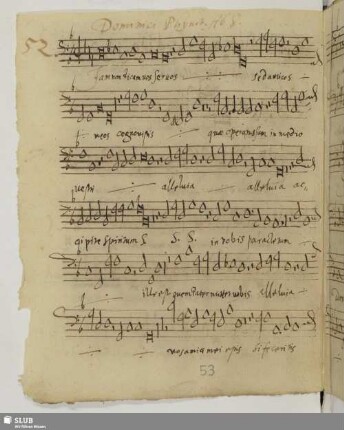 52.
Iam non dicam vos servos sed amicos
meos cognovistis quae operatus sum in medio
vestri alleluia alleluia ac,
cipite Spiritum S. S. S. in vobis paracletum
ille est quem Pater mittet vobis Alleluia
vos amici mei estis si feceritis
53
SLUB
Wir führen Wissen.